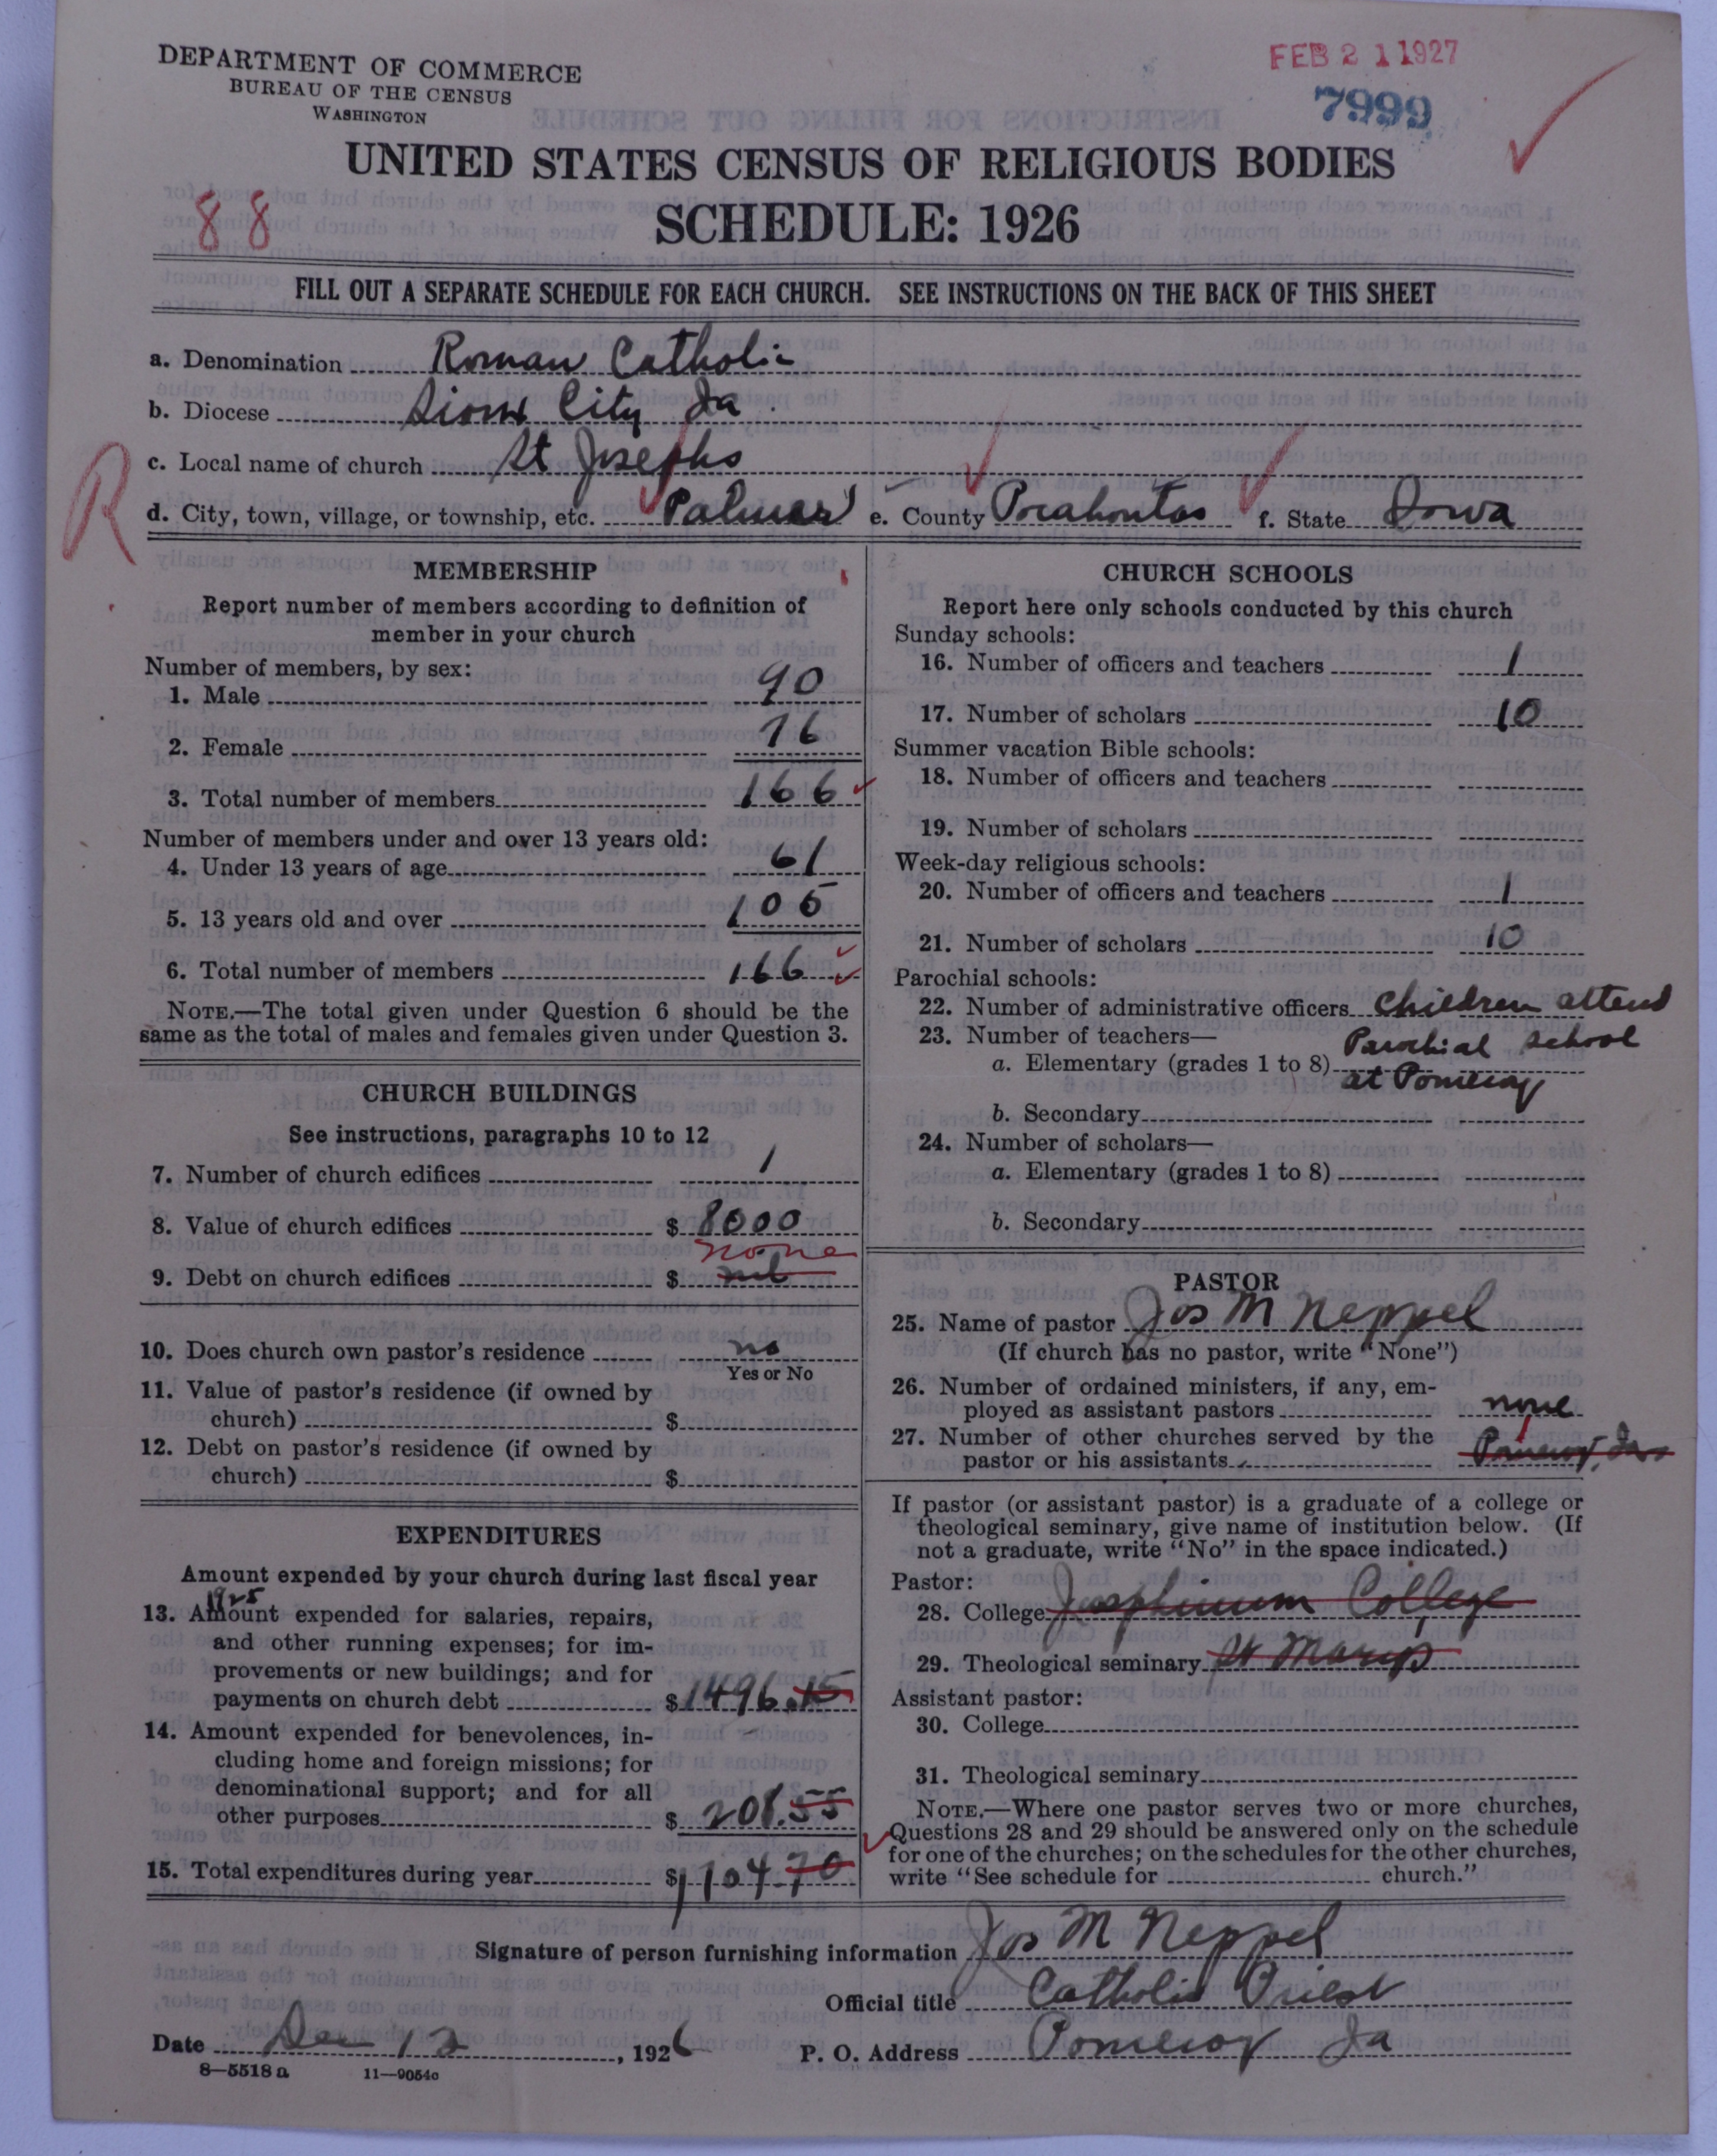 DEPARTMENT OF COMMERCE
BUREAU OF THE CENSUS
WASHINGTON
FEB 21 1927
7999
UNITED STATES CENSUS OF RELIGIOUS BODIES
88
SCHEDULE: 1926
FILL OUT A SEPARATE SCHEDULE FOR EACH CHURCH. SEE INSTRUCTIONS ON THE BACK OF THIS SHEET
a. Denomination Roman Catholic
b. Diocese Sioux City Ia
c. Local name of church St Josephs
R
d. City, town, village, or township, etc. Palmer e. County Pocahontas f. State Iowa
MEMBERSHIP
Report number of members according to definition of
member in your church
Number of members, by sex:
1. Male 90
2. Female 76
3. Total number of members 166
Number of members under and over 13 years old:
4. Under 13 years of age 61
5. 13 years old and over 105
6. Total number of members 166
NOTE.—The total given under Question 6 should be the
same as the total of males and females given under Question 3.
CHURCH BUILDINGS
See instructions, paragraphs 10 to 12
7. Number of church edifices 1
8. Value of church edifices $ 8000
none
9. Debt on church edifices $ nil
10. Does church own pastor's residence no
Yes or No
11. Value of pastor's residence (if owned by
church) $
12. Debt on pastor's residence (if owned by
church) $
EXPENDITURES
Amount expended by your church during last fiscal year
1925
13. Amount expended for salaries, repairs,
and other running expenses; for im-
provements or new buildings; and for
payments on church debt $ 1496.15
14. Amount expended for benevolences, in-
cluding home and foreign missions; for
denominational support; and for all
other purposes $ 208.55
15. Total expenditures during year $ 1704.70
CHURCH SCHOOLS
Report here only schools conducted by this church
Sunday schools:
16. Number of officers and teachers 1
17. Number of scholars 10
Summer vacation Bible schools:
18. Number of officers and teachers
19. Number of scholars
Week-day religious schools:
20. Number of officers and teachers 1
21. Number of scholars 10
Parochial schools:
22. Number of administrative officers Children attend
23. Number of teachers— Parochial School
a. Elementary (grades 1 to 8) at Pomeroy
b. Secondary
24. Number of scholars—
a. Elementary (grades 1 to 8)
b. Secondary
PASTOR
25. Name of pastor Jos M Neppel
(If church has no pastor, write "None")
26. Number of ordained ministers, if any, em-
ployed as assistant pastors none
27. Number of other churches served by the
pastor or his assistants Pomeroy, Ia
If pastor (or assistant pastor) is a graduate of a college or
theological seminary, give name of institution below. (If
not a graduate, write "No" in the space indicated.)
Pastor:
28. College Josephinum College
29. Theological seminary St Marys
Assistant pastor:
30. College
31. Theological seminary
NOTE.—Where one pastor serves two or more churches,
Questions 28 and 29 should be answered only on the schedule
for one of the churches; on the schedules for the other churches,
write "See schedule for church."
Signature of person furnishing information Jos M Neppel
Official title Catholic Priest
Date Dec 12, 1926 P. O. Address Pomeroy Ia
8—5518 a 11—9054c